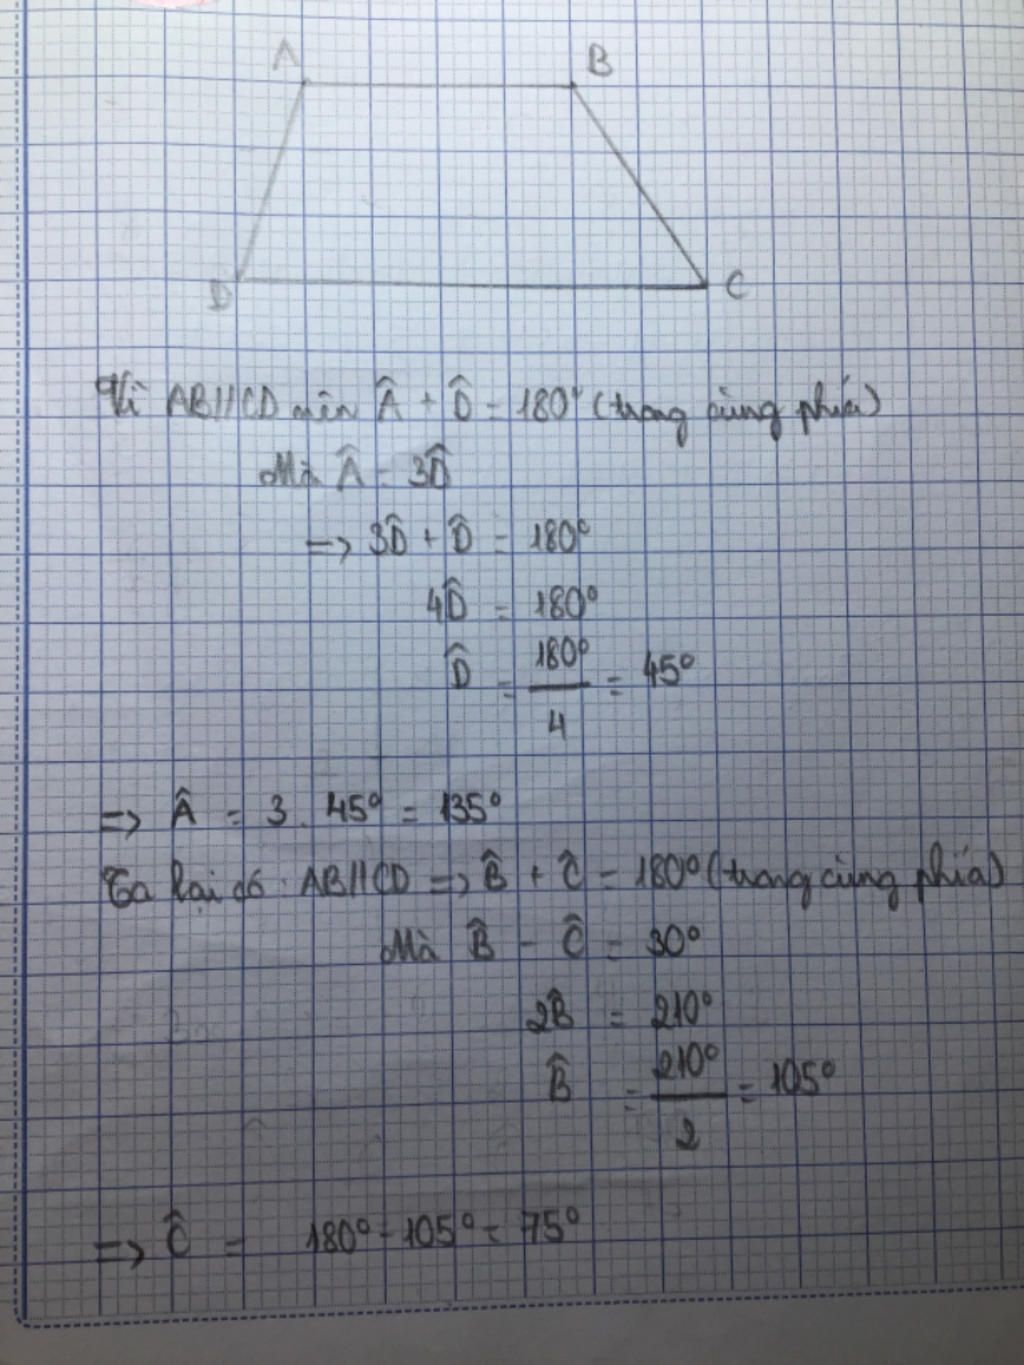 A B
D C
Vì AB//CD nên Â + D̂ = 180° (trong cùng phía)
Mà Â = 3D̂
=> 3D̂ + D̂ = 180°
4D̂ = 180°
D̂ = 180°/4 = 45°
=> Â = 3. 45° = 135°
Ta lại có: AB//CD => B̂ + Ĉ = 180° (trong cùng phía)
Mà B̂ - Ĉ = 30°
2B̂ = 210°
B̂ = 210°/2 = 105°
=> Ĉ = 180° - 105° = 75°